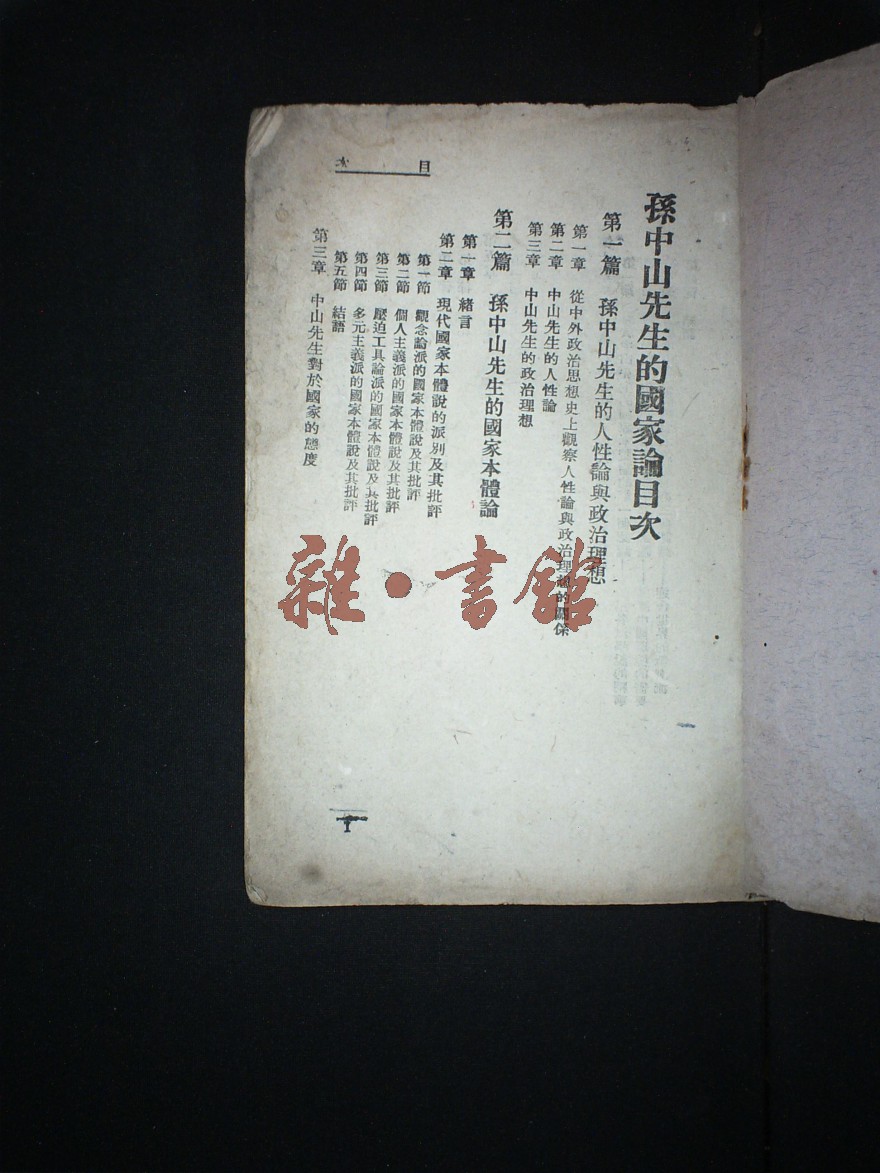 孫中山先生的國家論目次
第一篇　孫中山先生的人性論與政治理想
第一章　從中外政治思想史上觀察人性論與政治理想的關係
第二章　中山先生的人性論
第三章　中山先生的政治理想
第二篇　孫中山先生的國家本體論
第一章　緒言
第二章　現代國家本體說的派別及其批評
第一節　觀念論派的國家本體說及其批評
第二節　個人主義派的國家本體說及其批評
第三節　壓迫工具論派的國家本體說及其批評
第四節　多元主義派的國家本體說及其批評
第五節　結語
第三章　中山先生對於國家的態度
目　次
1
雜·書館